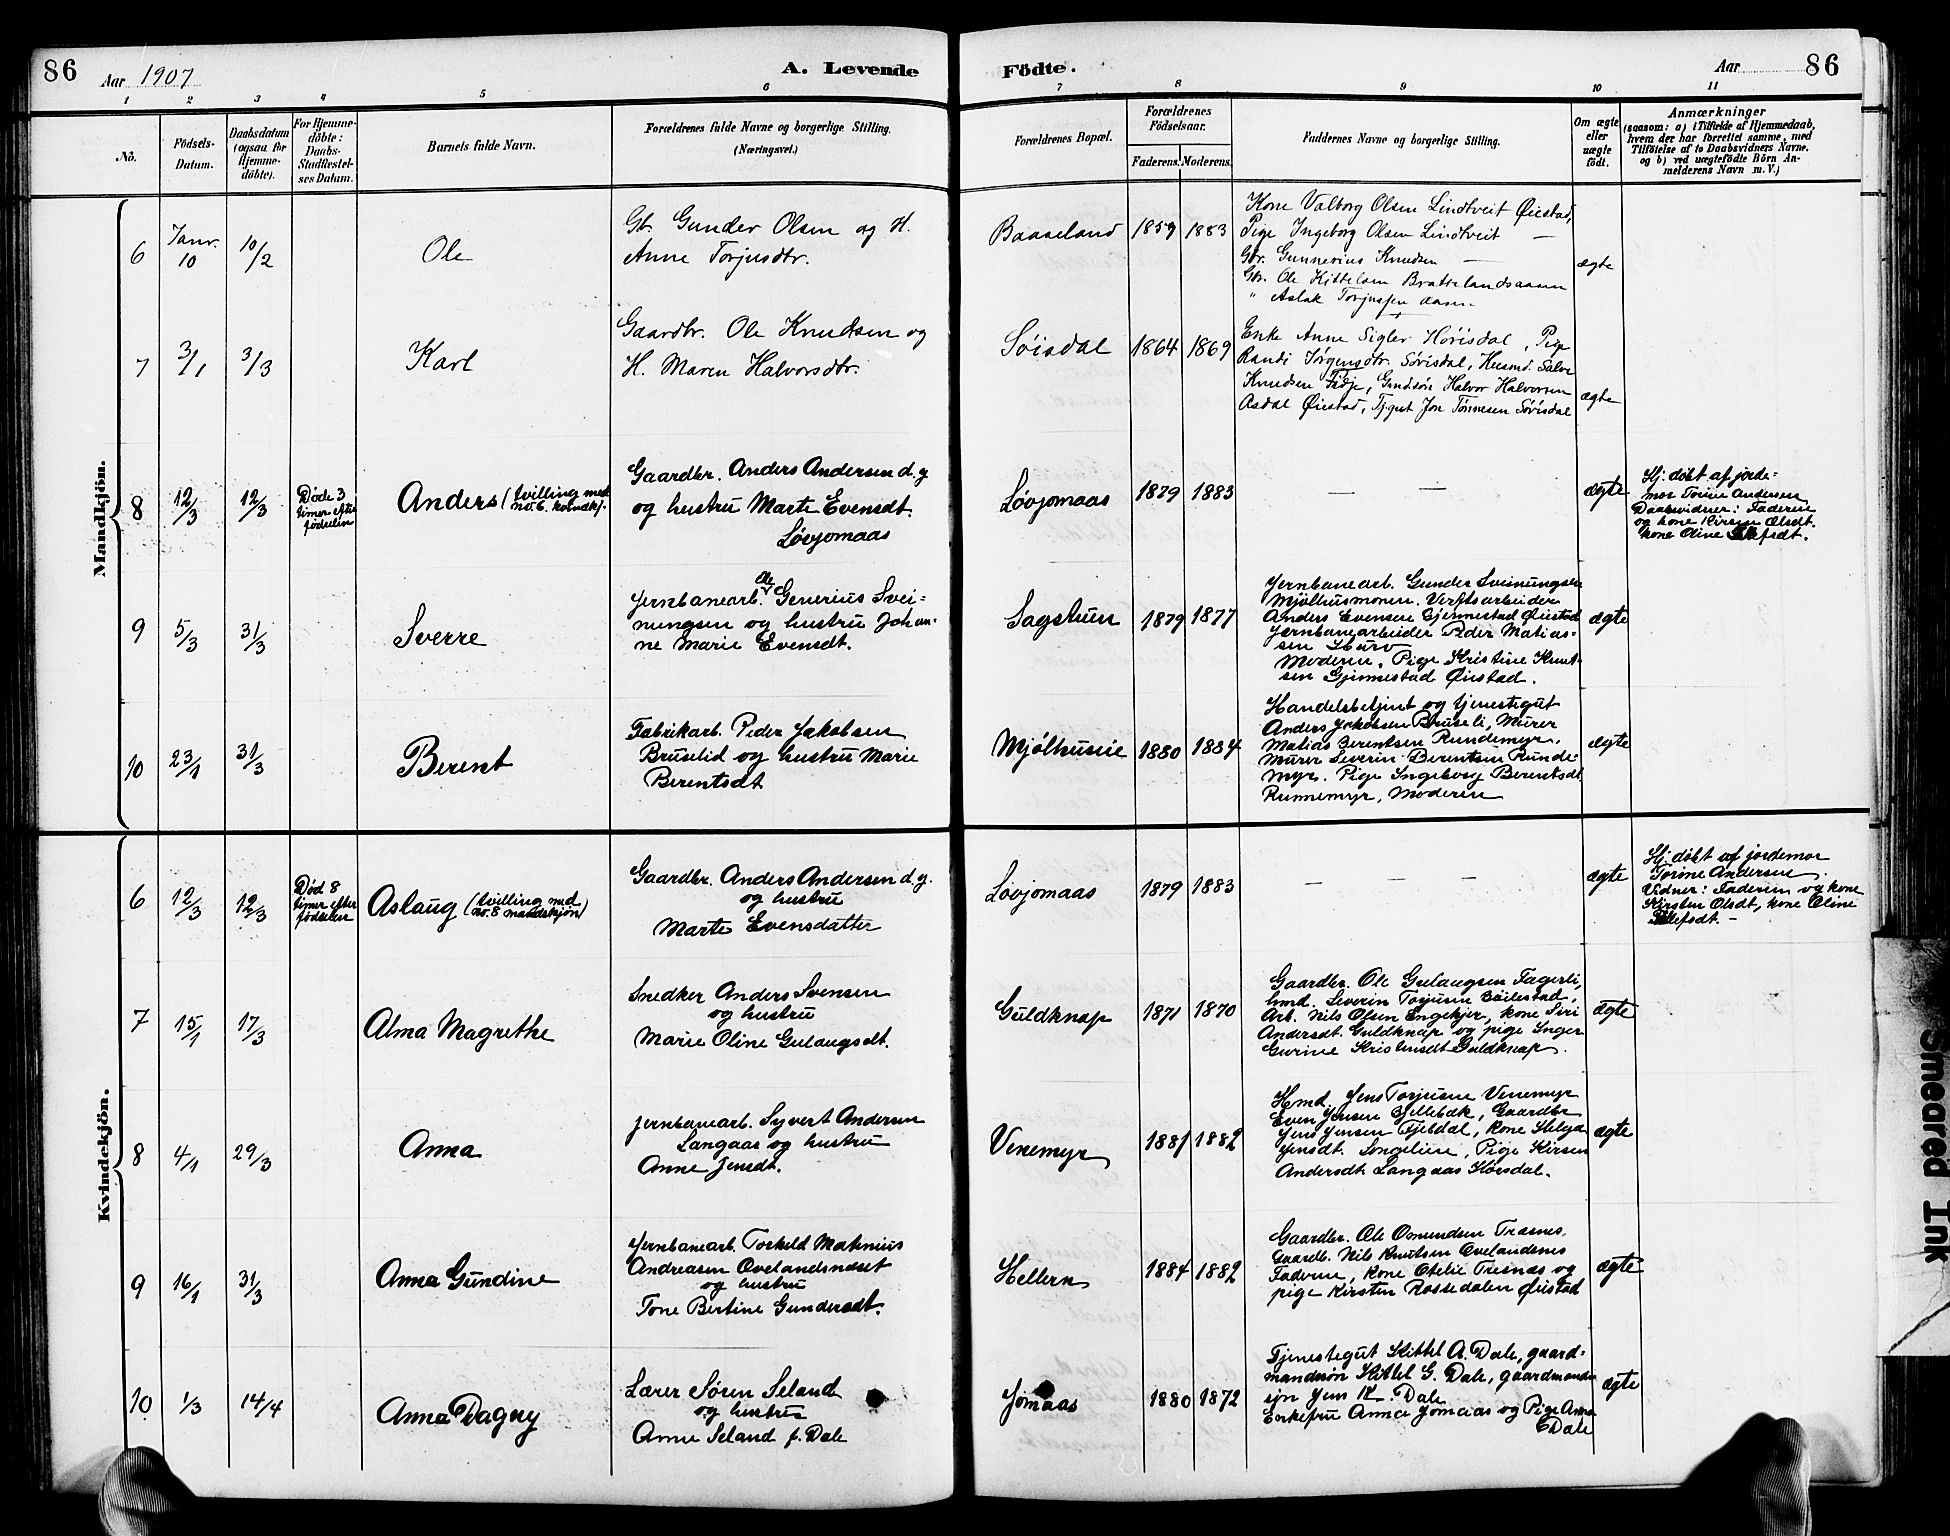 86
Aar 1907
A. Levende
Födte.
Aar
86
1 2 3 4 5 6 7 8 9 10 11
No.
Födsels-Datum.
Daabsdatum (ogsaa for Hjemme-döbte).
For Hjemme-döbte: Daabs-Stadfæstel-ses Datum.
Barnets fulde Navn.
Forældrenes fulde Navne og borgerlige Stilling.
(Næringsvei.)
Forældrenes Bopæl.
Forældrenes Födselsaar.
Faderens. Moderens.
Faddernes Navne og borgerlige Stilling.
Om ægte eller uægte födt.
Anmærkninger
(saasom: a) i Tilfælde af Hjemmedaab,
hvem der har forrettet samme, med
Tilföielse af to Daabsvidners Navne.
og b) ved uægtefödte Börn An-
melderens Navn m. V.)
Mandkjön.
6 Janr. 10 10/2 Ole
Gb. Gunder Olsen og H.
Anne Torjusdtr.
Baaseland 1859 1883
Kone Valborg Olsen Lindtveit Øiestad,
Pige Ingeborg Olsen Lindtveit —
Gbr. Gunnerius Knudsen —
Gbr. Ole Kittelsen Brattelandsaasen
" Aslak Torjussen
ægte
7 3/1 3/3 Karl
Gaardbr. Ole Knudsen og
H. Maren Halvorsdtr.
Søisdal 1864 1869
Enke Anne Sigler Hørisdal, Pige
Randi Jørgensdtr. Sørisdal, Husmd. Salve
Knudsen Fidje, Halvor Halvorsen
Asdal Øiestad, Tjgut Jon Tønnesen Sørisdal
ægte
8 12/3 12/3
Døde 3
timer efter
fødselen
Anders (tvilling med
no. 6. kvindekj.
Gaardbr. Anders Andersen d.y
og hustru Marte Evensdt.
Løvjomaas
Løvjomaas 1879 1883 — —
ægte
Hj. døbt af jorde-
mor Torine Andersen
Daabsvidner: Faderen
og kone Kirsten Olsdt.
kone Oline
9 5/3 31/3 Sverre
Jernbanearb. Ole Generius Svei-
nungsen og hustru Johan-
ne Marie Evensdt.
Sagstuen 1879 1877
Jernbanearb. Gunder Sveinungsen
Mjølhusmonen. Verftsarbeider
Anders Evensen Gjennestad Øiestad
Jernbanearbeider Peder Matias-
sen
Moderen. Pige Kristine Knut-
sen Gjennestad Øiestad.
ægte
10 23/1 31/3 Berent
Fabrikarb. Peder Jakobsen
Bruselid og hustru Marie
Berentsdt
Mjølhusene 1880 1884
Handelsbetjent og tjenestegut
Anders Jakobsen Bruseli, Murer
Matias Berentsen Rundemyr,
Murer Severin Berentsen Runde
myr. Pige Ingeborg Berentsdt
Runnemyr, Moderen
ægte
Kvindekjön.
6 12/3 12/3
Død 8
timer efter
fødselen
Aslaug (tvilling med
no. 8 mandskjøn)
Gaardbr. Anders Andersen d.y.
og hustru
Marte Evensdatter
Lovjomaas 1879 1883 — —
ægte
Hj. døbt af jordemor
Torine Andersen.
Vidner: Faderen og kone
Kirsten Olsdt, kone Oline
7 15/1 17/3 Alma Magrethe
Snedker Anders Svensen
og hustru
Marie Oline Gulaugsdt.
Guldknap 1871 1870
Gaardbr. Ole Gulaugsen Fagerli,
hmd. Severin Torjusen Bøilestad,
Arb. Nils Olsen Engekjer, kone Siri
Andersdt. Guldknap og pige Inger
Gurine Kristensdt Guldknap.
ægte
8 4/1 29/3 Anna
Jernbanearb. Syvert Andersen
Langaas og hustru
Anne Jensdt.
Venemyr 1881 1882
Hmd. Jens Torjusen Venemyr
Even Jensen Gjellebæk, Gaardbr
Jens Jensen Fjeldal, kone Helga
Jensdt. Songelien, Pige Kirsen
Andersdt Langaas Hørsdal.
ægte
9 16/1 31/3 Anna Gundine
Jernbanearb. Torkeld Matinius
Andreasen Ovelandsneset
og hustru
Tone Bertine Gundersdt.
Hellern 1884 1882
Gaardbr. Ole Osmundsen Træsnes.
Gaardb. Nils Knutsen Ovelandsnes
Faderen, kone Otelie Tresnæs og
pige Kirsten Rossedalen Øiestad
ægte
10 1/3 14/4 Anna Dagny
Lærer Søren Seland
og hustru
Anne Seland f. Dale
Jomaas 1880 1872
Tjenestegut Kittel A. Dale, gaard-
mandsøn Kittel G. Dale, gaardmands
søn Jens K. Dale
Enkefru Anna Jomaas og Pige Anna
Dale
ægte
Smeared Ink